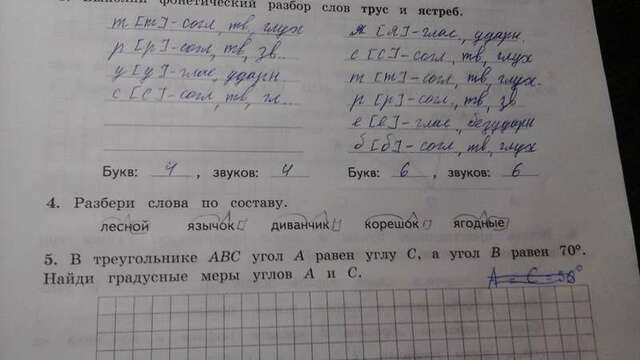 Выполни фонетический разбор слов трус и ястреб.
т [т] - согл, тв, глух
р [р] - согл, тв, зв.
у [у] - глас, ударн.
с [с] - согл, тв, гл.
Букв: 4, звуков: 4
я [я] - глас, ударн.
с [с] - согл, тв, глух
т [т] - согл, тв, глух.
р [р] - согл, тв, зв
е [е] - глас, безударн
б [б] - согл, тв, глух
Букв: 6, звуков: 6
4. Разбери слова по составу.
лесной язычок диванчик корешок ягодные
5. В треугольнике ABC угол A равен углу C, а угол B равен 70°.
Найди градусные меры углов A и C.
A = C = 55°